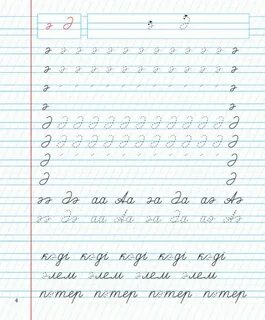 ә Ә ә Ә
ә ә ә ә ә ә ә ә ә ә ә ә
ә ә ә ә ә ә ә ә ә ә ә ә
ә ә
ә ә
Ә Ә Ә Ә Ә Ә Ә Ә Ә Ә Ә Ә
Ә Ә Ә Ә Ә Ә Ә Ә Ә Ә Ә Ә
Ә Ә
Ә Ә
әә Әә аа Аа әа Әа аә Аә
әә Әә аа Аа әа Әа аә Аә
кәді кәді кәді кәді кәді
әлем әлем әлем әлем
пәтер пәтер пәтер пәтер
4